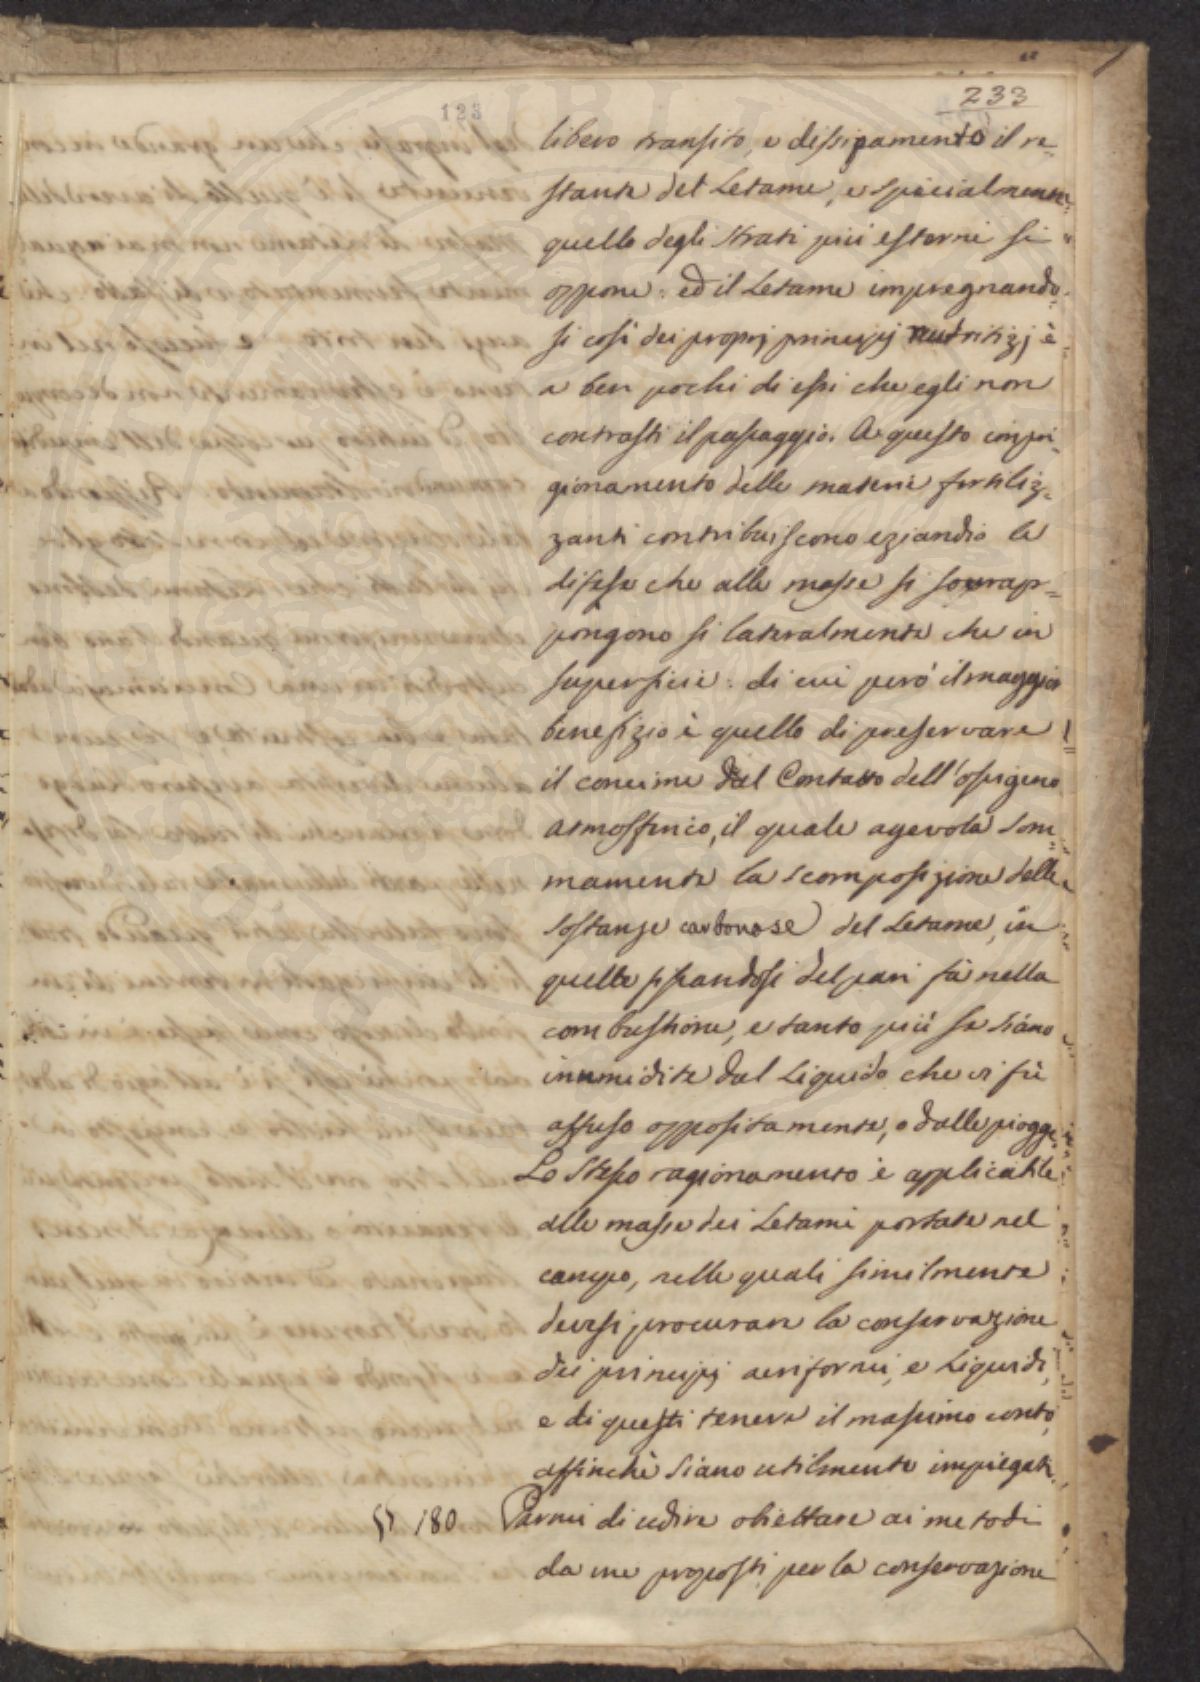 233
123
libero transito, e dissipamento il re=
stante del Letame, e specialmente
quello degli strati più esterni si
oppone: ed il Letame impregnando=
si così dei proprj principj nutritizj è
a ben pochi di essi che egli non
contrasti il passaggio. A questo impri=
gionamento delle materie fertiliz=
zanti contribuiscono eziandio le
difese che alle masse si sovrap=
pongono sì lateralmente che in
superficie: di cui però il maggior
benefizio è quello di preservare
il concime dal Contatto dell'ossigeno
atmosferico, il quale agevola som=
mamente la scomposizione delle
sostanze carbonose del Letame, in
quelle fissandosi del pari fà nella
combustione, e tanto più se siano
inumidite dal Liquido che vi fù
affuso appositamente, o dalle piogge
Lo stesso ragionamento è applicabile
alle masse dei Letami portate nel
campo, nelle quali similmente
devesi procurare la conservazione
dei principj aeriformi, e Liquidi,
e di questi tenere il massimo conto,
affinchè siano utilmente impiegati.
§ 180 Parmi di udire obiettare ai metodi
da me proposti per la conservazione